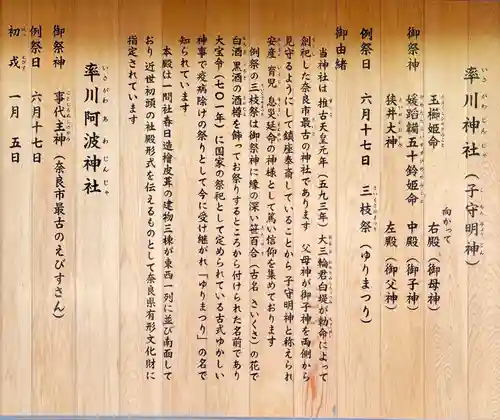 率川神社(子守明神)
いさがわじんじゃ
御祭神
向かって
玉櫛姫命 右殿(御母神)
媛蹈韛五十鈴姫命 中殿(御子神)
狭井大神 左殿(御父神)
例祭日 六月十七日 三枝祭(ゆりまつり)
御由緒
当神社は推古天皇元年(五九三年)大三輪君白堤が勅命によって
創祀した奈良市最古の神社であります 父母神が御子神を両側から
見守るようにして鎮座奉斎していることから子守明神と称えられ
安産 育児 息災延命の神様として篤い信仰を集めております
例祭の三枝祭は御祭神に縁の深い笹百合(古名 さいくさ)の花で
白酒 黒酒の酒樽を飾ってお祭りするところから付けられた名前であり
大宝令(七〇一年)に国家の祭祀として定められている古式ゆかしい
神事で疫病除けの祭りとして今に受け継がれ「ゆりまつり」の名で
知られています
本殿は一間社春日造檜皮葺の建物三棟が東西一列に並び南面して
おり 近世初頭の社殿形式を伝えるものとして奈良県有形文化財に
指定されています
率川阿波神社
いさがわあわじんじゃ
御祭神 事代主神(奈良市最古のえびすさん)
例祭日 六月十七日
初戎 一月 五日